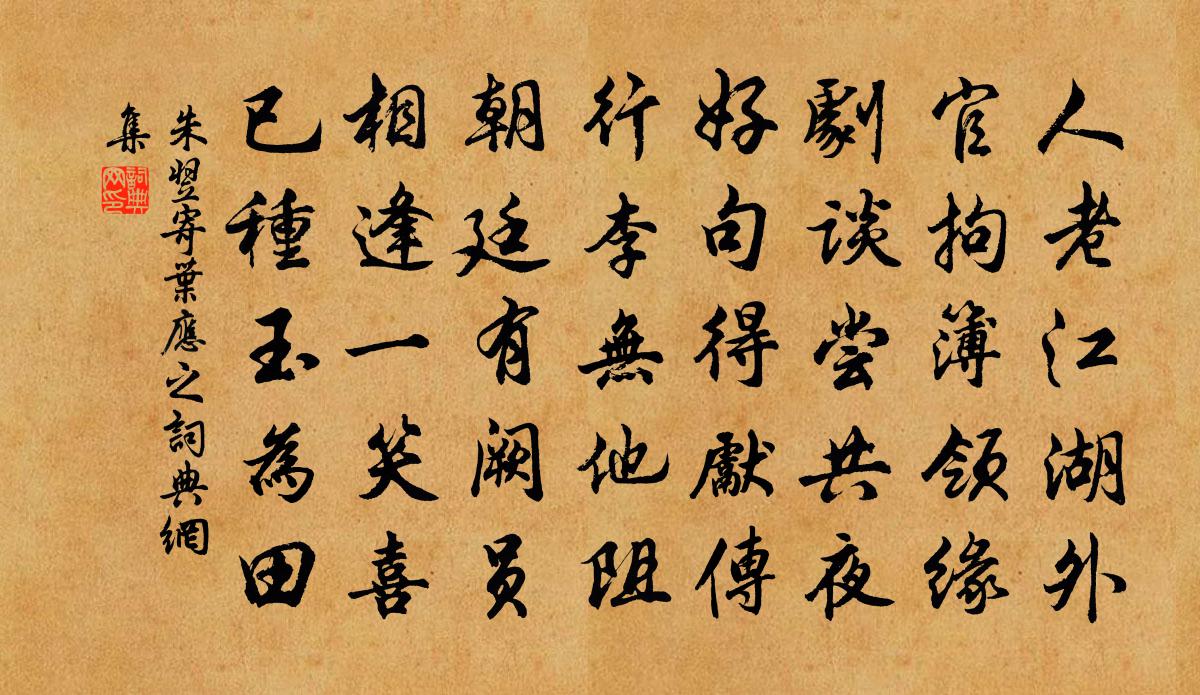 人老江湖外
官拘簿領緣
劇談嘗共夜
好句得獻傳
行李無他阻
朝廷有闕員
相逢一笑喜
已種玉為田
朱翌寄葉應之詞典網
集
詞典網印